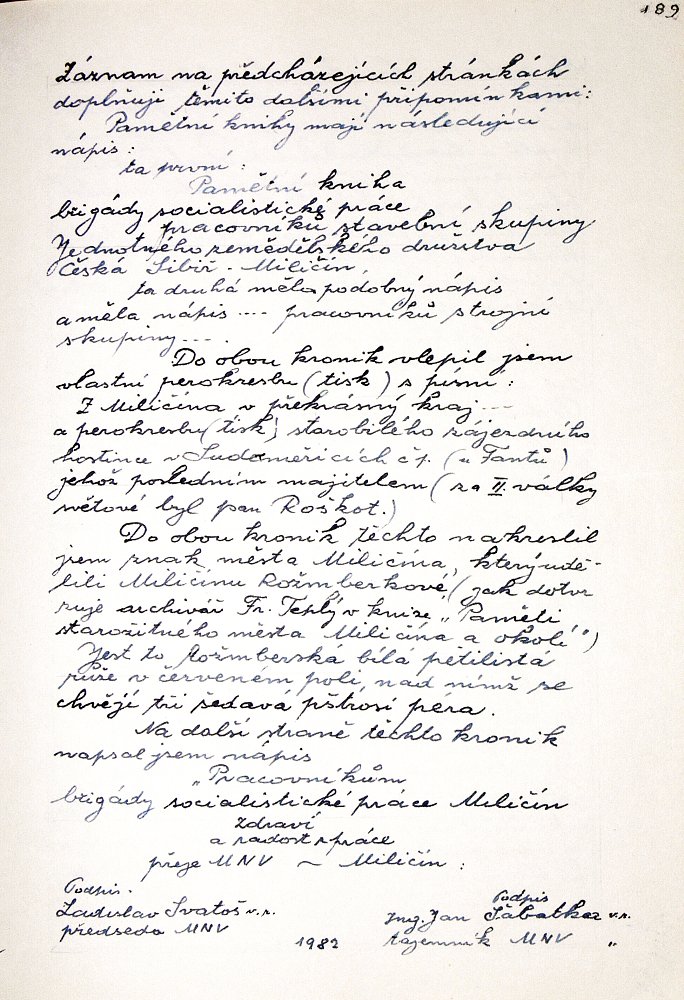 189
Záznam na předcházejících stránkách
doplňuji těmito dalšími připomínkami:
Pamětní knihy mají následující
nápis:
ta první:
Pamětní kniha
brigády socialistické práce
pracovníků stavební skupiny
Jednotného zemědělského družstva
Česká Sibiř - Miličín,
ta druhá měla podobný nápis
a měla nápis .... pracovníků strojní
skupiny ....
Do obou kronik vlepil jsem
vlastní perokresbu (tisk) s písní:
Z Miličína v překrásný kraj ....
a perokresbu (tisk) starobilého zájezdního
hostince v Sudoměřicích čp. (u Fantů)
jehož posledním majitelem (za II. války
světové byl pan Roškot.)
Do obou kronik těchto nakreslil
jsem znak města Miličína, který udě-
lili Miličínu Rožmberkové (jak dotvr
zuje archivář Fr. Teplý v knize "Paměti
starožitného města Miličína a okolí")
Jest to rožmberská bílá pětilistá
růže v červeném poli, nad nímž se
chvějí tři šedavá pštrosí péra.
Na další straně těchto kronik
napsal jsem nápis
"Pracovníkům
brigády socialistické práce Miličín
zdraví
a radost z práce
přeje MNV - Miličín:
Podpis.
Ladislav Svatoš v.r.
předseda MNV
1982
Podpis
Ing. Jan Šabatka v.r.
tajemník MNV "